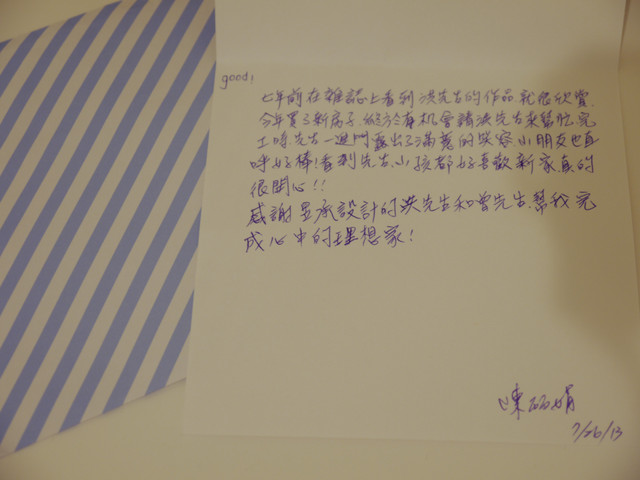 good!
七年前在雜誌上看到洪先生的作品就很欣賞.
今年買了新房子,終於有机會請洪先生來幫忙.完
工時先生一進門露出了滿意的笑容小朋友也直
呼好棒!看到先生,小孩都好喜歡新家真的
很開心!!
感謝昱承設計的洪先生和曾先生.幫我完
成心中的理想家!
陳 娟
7/26/13